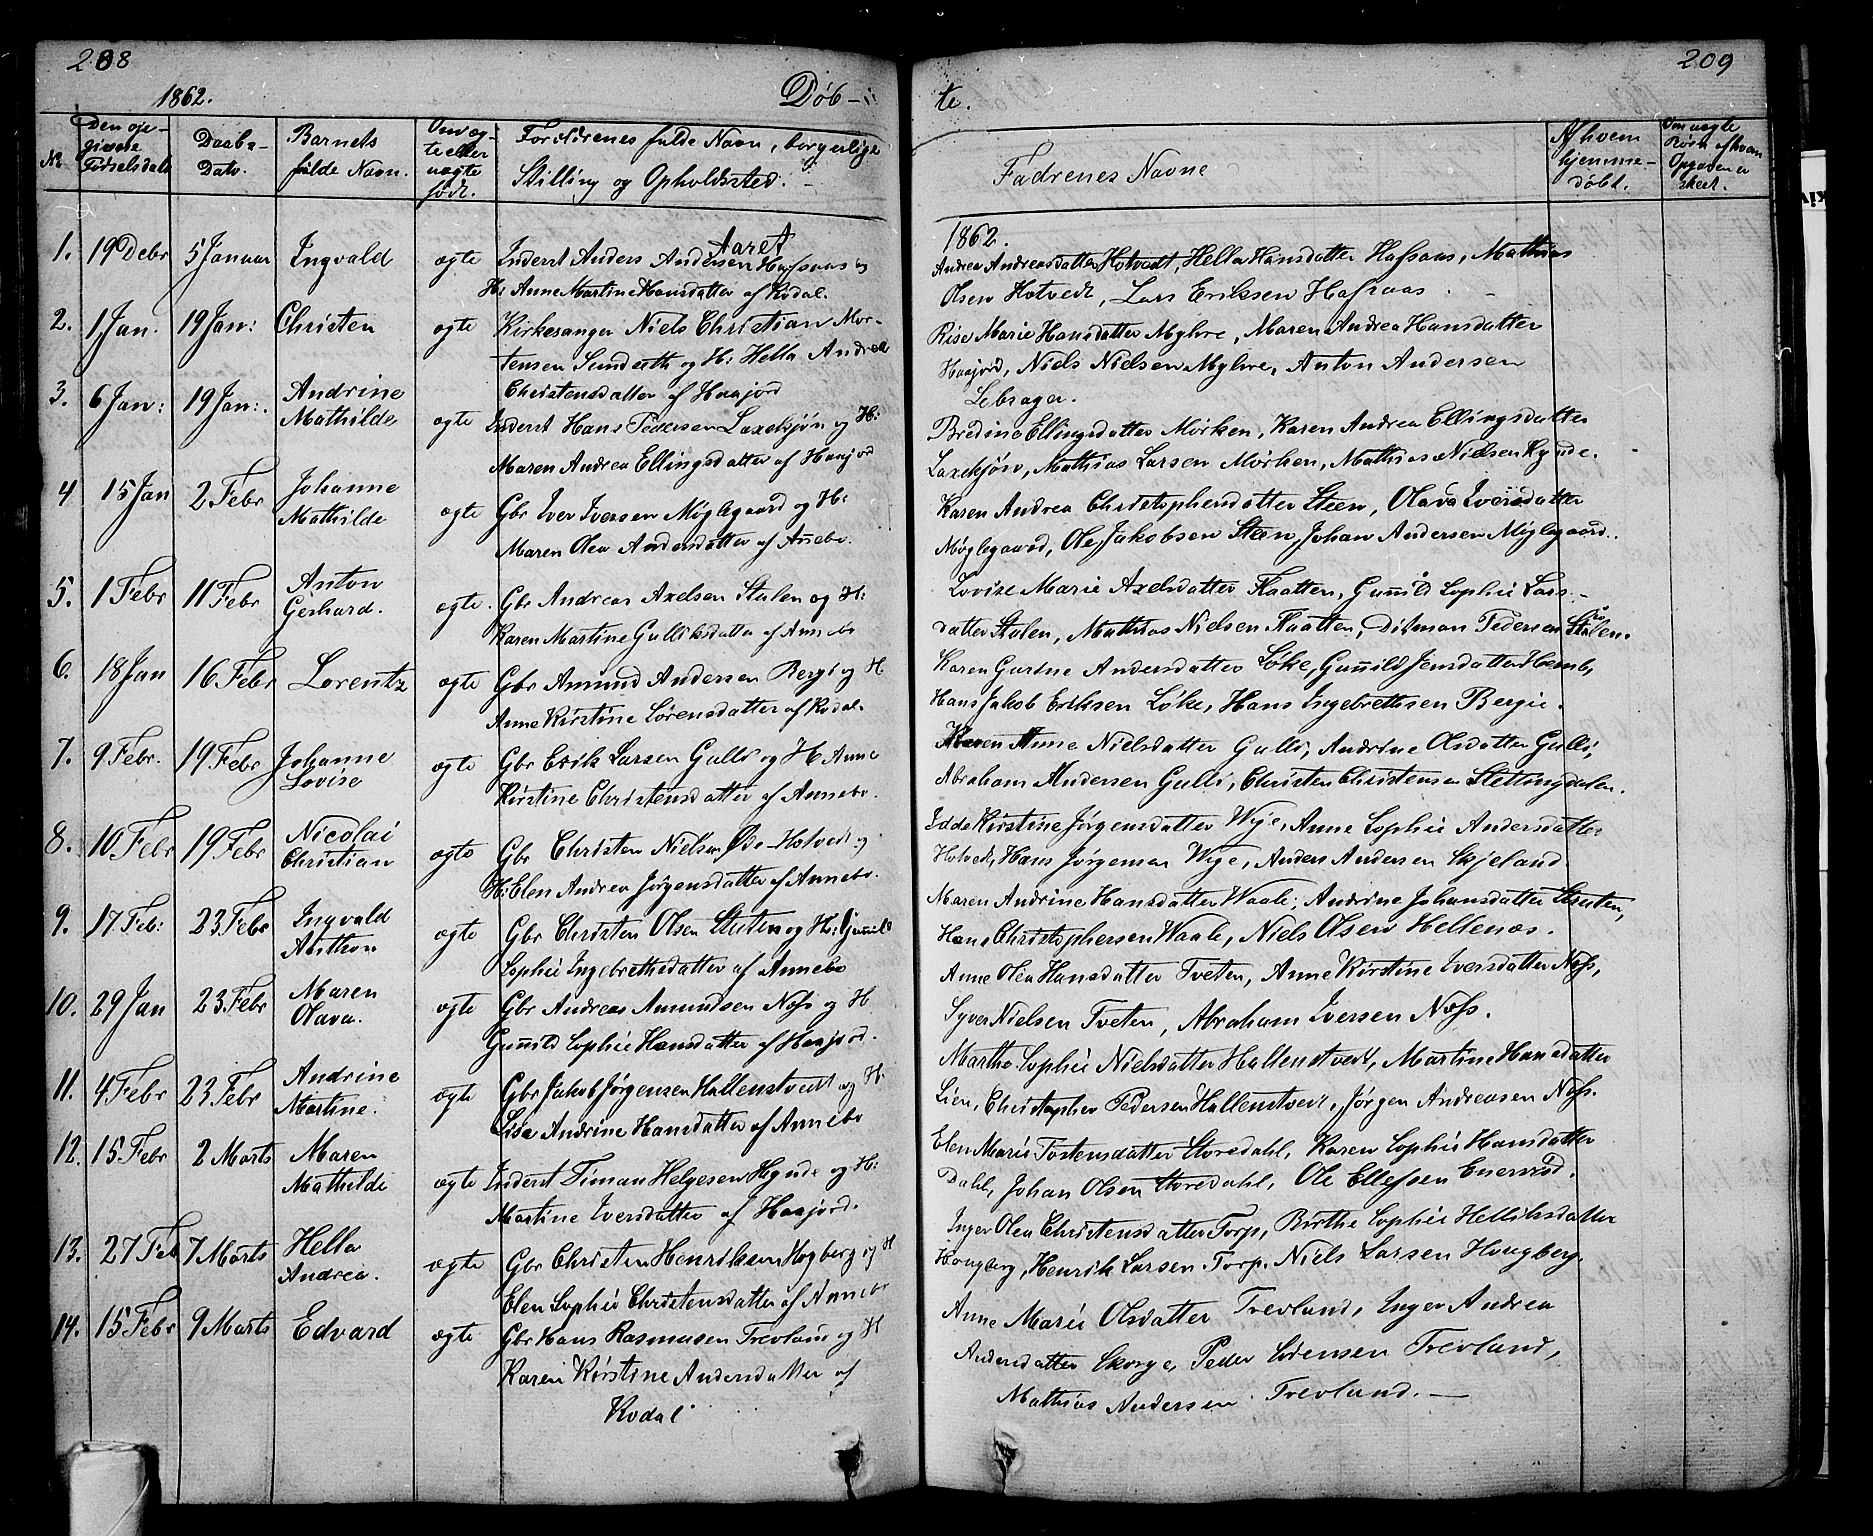 208
1862.
Døb-
No
Den opgivene Fødselsdato
Daabs-Dato.
Barnets fulde Navn.
Om ægte eller uægte født.
Forældrenes fulde Navn, borgerlige
Stilling og Opholdssted.
1. 19 Debr 5 Januar Ingvald ægte Inderst Anders Andersen Aaret Hafsaas og
H: Anne Martine Hansdatter af Kodal.
2. 1 Jan. 19 Jan: Christen ægte Kirkesanger Niels Christian Mor-
tensen Sundseth og H: Hella Andrea
Christensdatter af Haajord
3. 6 Jan: 19 Jan: Andrine
Mathilde ægte Inderst Hans Pedersen Laxekjøn og H:
Maren Andrea Ellingsdatter af Haajord
4 15 Jan 2 Febr Johanne
Mathilde ægte Gbr Iver Iversen Møglegaard og H:
Maren Olea Andersdatter af Anebo.
5. 1 Febr 11 Febr Anton
Gerhard. ægte. Gbr Andreas Axelsen Stulen og H:
Karen Martine Gulliksdatter af Annebo
6. 18 Jan 16 Febr Lorentz ægte Gbr Amund Andersen Bergi og H
Anne Kirstine Sørensdatter af Kodal.
7. 9 Febr. 19 Febr Johanne
Lovise ægte Gbr Erik Larsen Galli og H Anne
Kirstine Christensdatter af Annebo.
8. 10 Febr 19 Febr Nicolai
Christian ægte Gbr Christen Nielsen Øde-Hotvedt og
H: Elen Andrea Jørgensdatter af Annebo.
9. 17 Feb: 23 Febr Ingvald
ægte Gbr Christen Olsen Stuten og H: Gunild
Sophie Ingebrethsdatter af Annebo
10. 29 Jan 23 Febr Maren
Olava. ægte Gbr Andreas Amundsen Næss og H
Gunild Sophie Hansdatter af Haajord.
11. 4 Febr 23 Febr Andrine
Martine. ægte Gbr Jakob Jørgensen Hallenstvedt og H:
Lise Andrine Hansdatter af Annebo
12. 15 Febr 2 Marts Maren
Mathilde ægte Inderst Timan Helgesen Hynde og H:
Martine Iversdatter af Haajord.
13. 27 Feb 7 Marts Hella
Andrea. ægte Gbr Christen Henriksen Hogberg og H
Elen Sophie Christensdatter af Annebo
14. 15 Febr 9 Marts Edvard ægte Gbr Hans Rasmusen Trevland og H
Karen Kirstine Andersdatter af
Kodal
209
te.
Fadrenes Navne
Af hvem hjemmedøbt.
Om uægte Børn af hvem Opgaven er skeet.
1862.
Andrea Andreasdatter Hotvedt, Hella Hansdatter Hafsaas, Mathias
Olsen Hotvedt, Lars Eriksen Hafsaas.
Rise Marie Hansdatter Myhre, Maren Andrea Hansdatter
Haajord, Niels Nielsen Myhre, Anton Andersen
Lebrager.
Bredine Ellingsdatter Mørken, Karen Andrea Ellingsdatter
Laxekjøn, Mathias Larsen Mørken, Mathias Nielsen Hynde.
Karen Andrea Christophersdatter Steen, Olava Iversdatter
Møglegaard, Ole Jakobsen Steen, Johan Andersen Møglegaard.
Lovise Marie Axelsdatter Flaatten, Gunild Sophie Lars-
datter Stulen, Mathias Nielsen Flaatten, Ditman Pedersen Stulen.
Karen Gurine Andersdatter Løke, Gunild Jensdatter Hemb,
Hans Jakob Eriksen Løke, Hans Ingebrethsen Bergie.
Karen Anne Nielsdatter Galli, Andrine Olsdatter Galli,
Abraham Andersen Galli, Christen Christensen Slettingdalen.
Idde Kirstine Jørgensdatter Wije, Anne Sophie Andersdatter
Hotvedt, Hans Jørgensen Wije, Anders Andersen Skjeland.
Maren Andrine Hansdatter Waale, Andrine Johansdatter Stuten,
Hans Christophersen Waale, Niels Olsen Hellenæs.
Anne Olea Hansdatter Tveten, Anne Kirstine Iversdatter Næss,
Syver Nielsen Tveten, Abraham Iversen Næss.
Marthe Sophie Nielsdatter Hallenstvedt, Martine Hansdatter
Lien, Christopher Pedersen Hallenstvedt, Jørgen Andreasen Næss.
Elen Marie Tostensdatter Storedahl, Karen Sophie Hansdatter
Dahl, Johan Olsen Storedahl, Ole Ellefsen Enersrød.
Inger Olea Christensdatter Torp, Birthe Sophie Helliksdatter
Hougberg, Henrik Larsen Torp. Niels Larsen Hougberg.
Anne Marie Olsdatter Trevland, Inger Andrea
Andersdatter Skorge, Peder Sørensen Trevland,
Mathias Andersen Trevland.